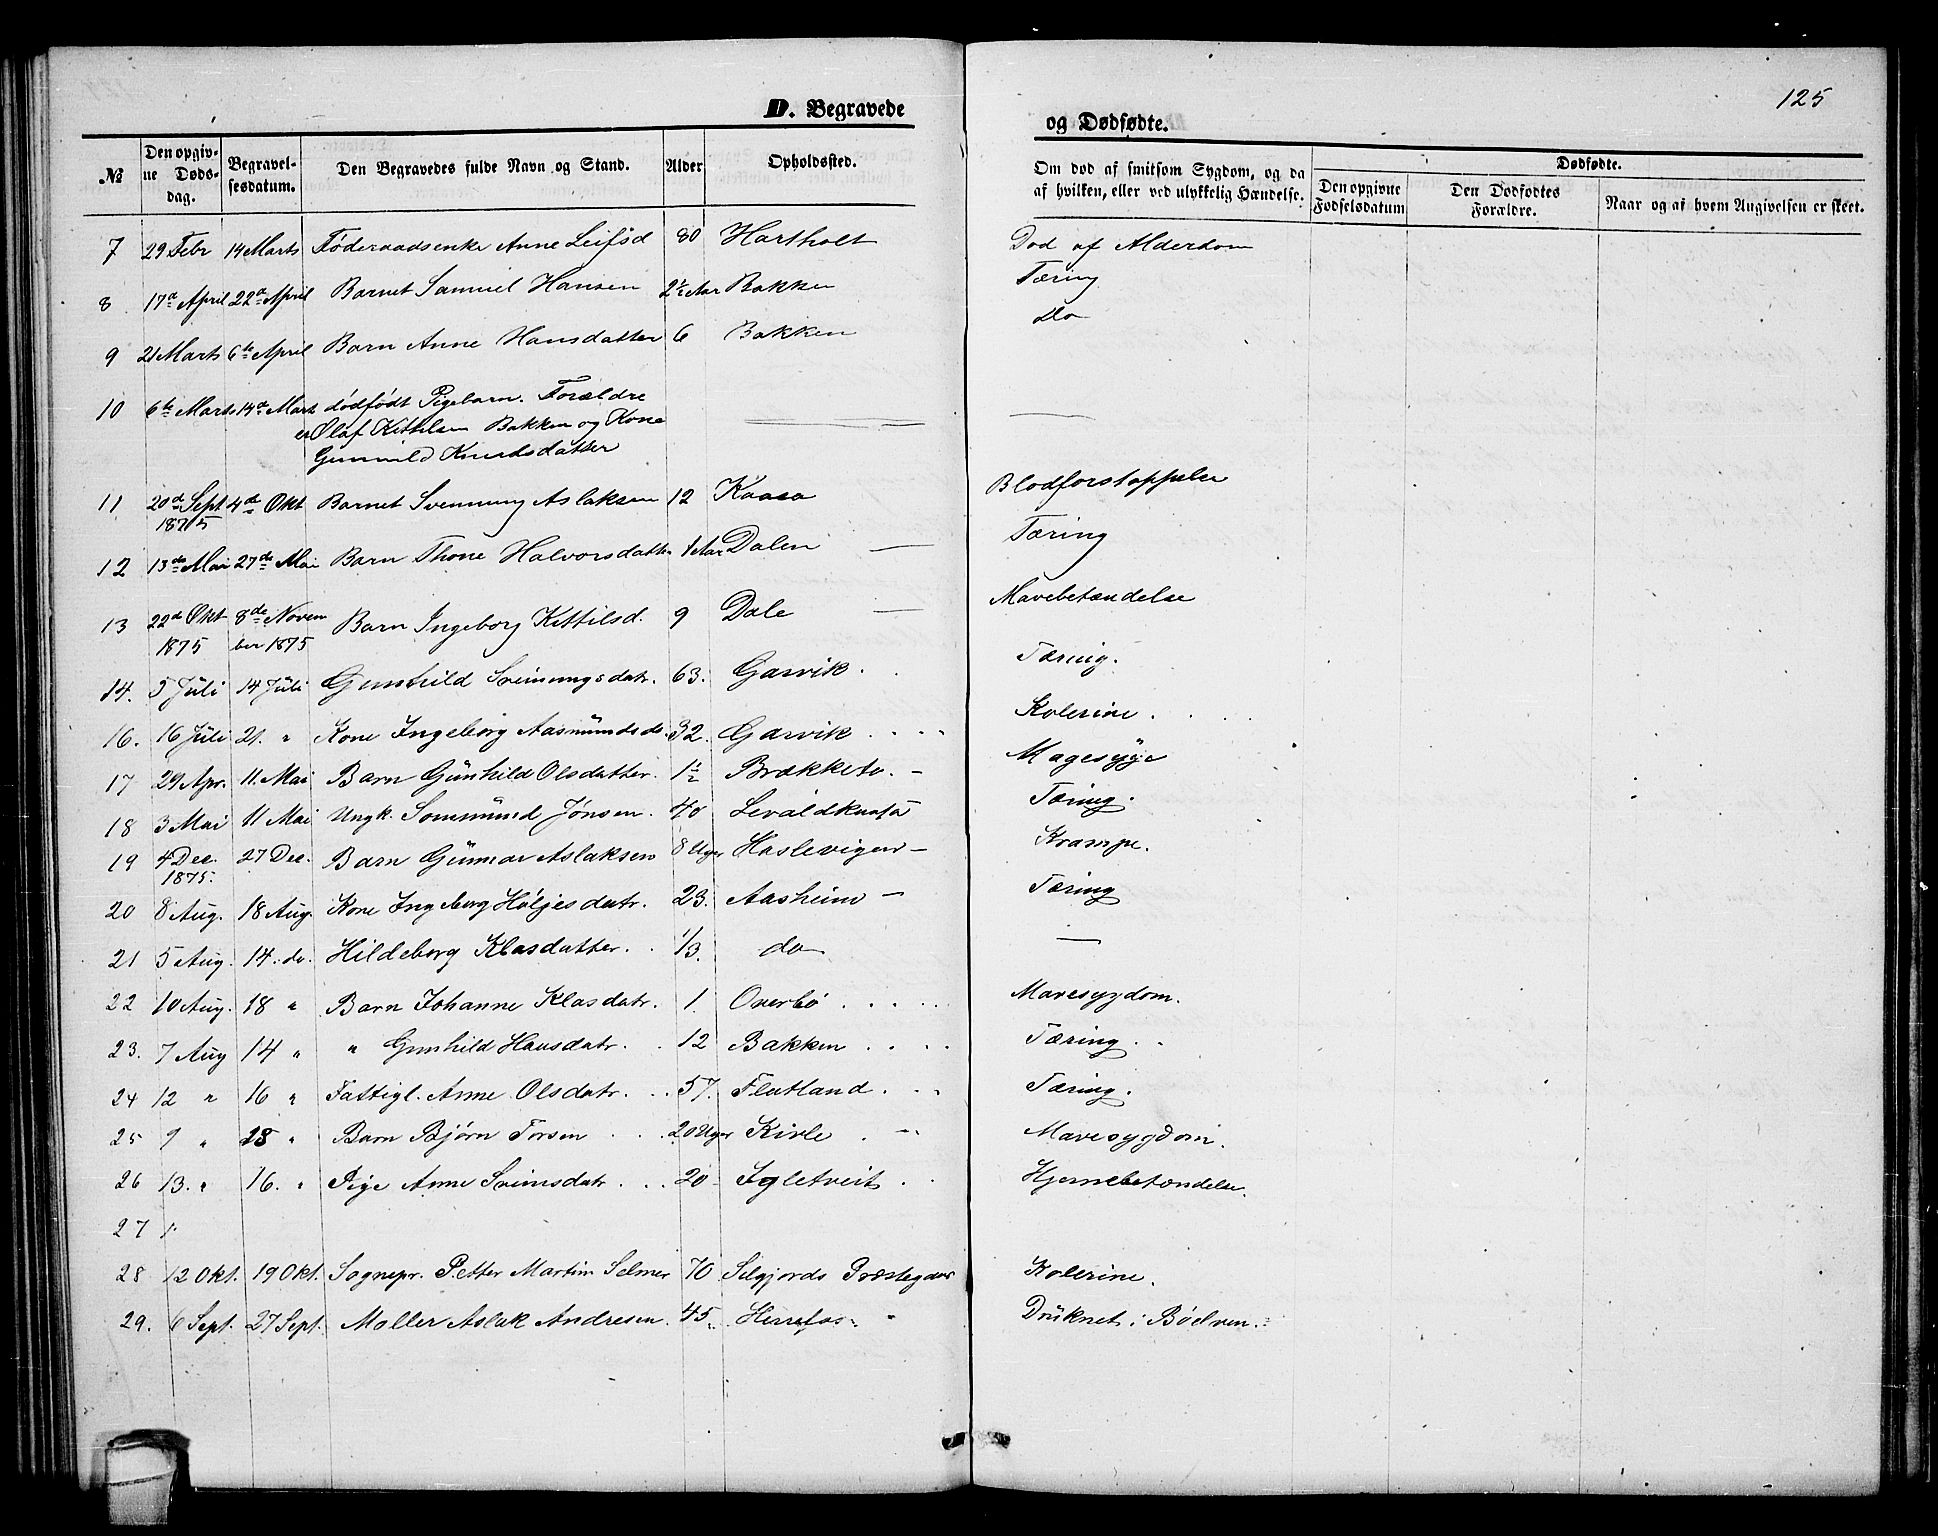 125
D. Begravede
og Dødfødte.
No
Den opgivne Dødsdag.
Begravelsesdatum.
Den Begravedes fulde Navn og Stand.
Alder
Opholdssted.
Om død af smitsom Sygdom, og da af hvilken, eller ved ulykkelig Hændelse.
Dødfødte.
Den opgivne Fødselsdatum
Den Dødfødtes Forældre.
Naar og af hvem Angivelsen er skeet.
7 29 Febr 14 Marts Føderaadsenke Anne Leifsd 80 Hartholt Død af Alderdom
8 17de April 22de April Barnet Samuel Hansen 2½ Aar Bakken Tæring
9 21 Marts 6te April Barn Anne Hansdatter 6 Bakken Do
10 6te Marts 14de Mart dødfødt Pigebarn. Forældre
er Olaf Kittilsen Bakken og Kone
Gunnild Knudsdatter
11 20de Sept 1875 4de Okt Barnet Svenning Aslaksen 12 Kaasa Blodforstoppelse
12 13de Mai 27de Mai Barn Thone Halvorsdatter 1 Aar Dalen — Tæring
13 22de Okt 1875 8de November 1875 Barn Ingeborg Kittilsd. 9 Dale — Mavebetændelse
14. 5 Juli 14 Juli Gunhild Sveinungsdatr. 63. Garvik. Tæring.
16. 16 Juli 21. " Kone Ingeborg Aasmundsd. 32. Garvik Kolerine.
17 29 Apr. 11. Mai Barn Gunhild Olsdatter. 1½ Brækketo. - Magesyge
18 3 Mai 11 Mai Ungk. Sommund Jønsen. 40 Tæring.
19 4 Dec. 1875. 27 Dec. Barn Gunnar Aslaksen 8 Uger Haslevigen - Krampe.
20 8 Aug. 18 Aug. Kone Ingeborg Høljesdatr. 23. Aasheim - Tæring
21 5 Aug. 14. do. Hildeborg Klasdatter. 1/3. do —
22 10 Aug. 18 " Barn Johanne Klasdatr. 1. Overbø Mavesygdom.
23. 7 Aug 14 " " Gunhild Hansdatr. 12 Bakken Tæring.
24 12 " 16 " Fattigl. Anne Olsdatr. 57. Flatland Tæring.
25 9 " 28 " Barn Bjørn Torsen 20 Uger Kivle Mavesygdom.
26 13. " 16. " Pige Anne Sveinsdatr. 20 Igletveit Hjernebetændelse.
27 1
28 12 Okt. 19 Okt. Sognepr. Petter Martin Selmer 70 Selgjords Præstegaar Kolerine.
29. 6 Sept. 27 Sept. Møller Aslak Andresen. 45 Herrefos Druknet i Bøelven.